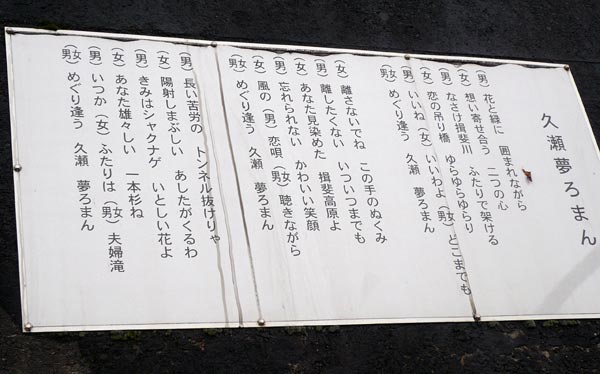 久瀬夢ろまん
(男) 花と緑に 囲まれながら
(女) 想い寄せ合う 二つの心
(男) なさけ揖斐川 ふたりで架ける
(女) 恋の吊り橋 ゆらゆらゆらり
(男) いいね (女) いいわよ (男女) どこまでも
(男女) めぐり逢う 久瀬 夢ろまん
(女) 離さないでね この手のぬくみ
(男) 離したくない いついつまでも
(女) あなた見染めた 揖斐高原よ
(男) 忘れられない かわいい笑顔
(女) 風の (男) 恋唄 (男女) 聴きながら
(男女) めぐり逢う 久瀬 夢ろまん
(男) 長い苦労の トンネル抜けりゃ
(女) 陽射しまぶしい あしたがくるわ
(男) きみはシャクナゲ いとしい花よ
(女) あなた雄々しい 一本杉ね
(男) いつか (女) ふたりは (男女) 夫婦滝
(男女) めぐり逢う 久瀬 夢ろまん